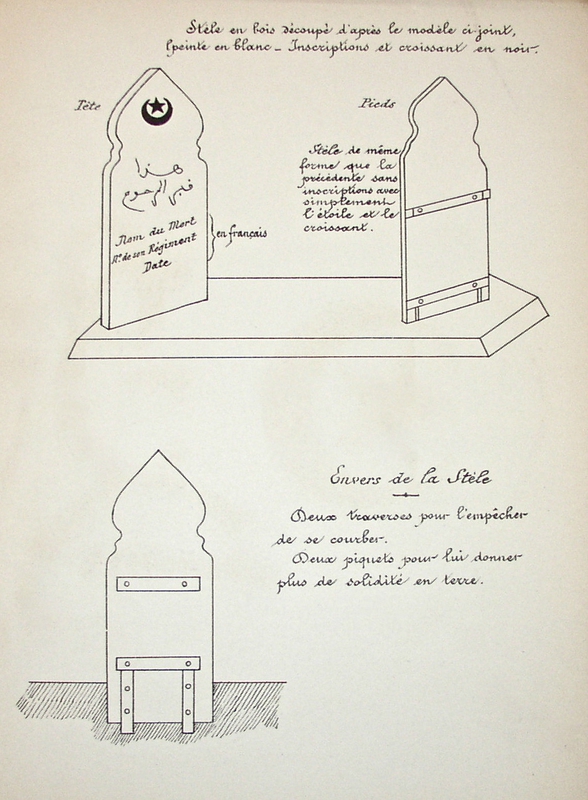 Stèle en bois découpé d'après le modèle ci-joint,
peinte en blanc _ Inscriptions et croissant en noir.
Tête
Pieds
هذا
قبر المرحوم
Nom du Mort
N° de son Régiment
Date
en français
Stèle de même
forme que la
précédente sans
inscriptions avec
simplement
l'étoile et le
croissant.
Envers de la Stèle
Deux traverses pour l'empêcher
de se courber.
Deux piquets pour lui donner
plus de solidité en terre.